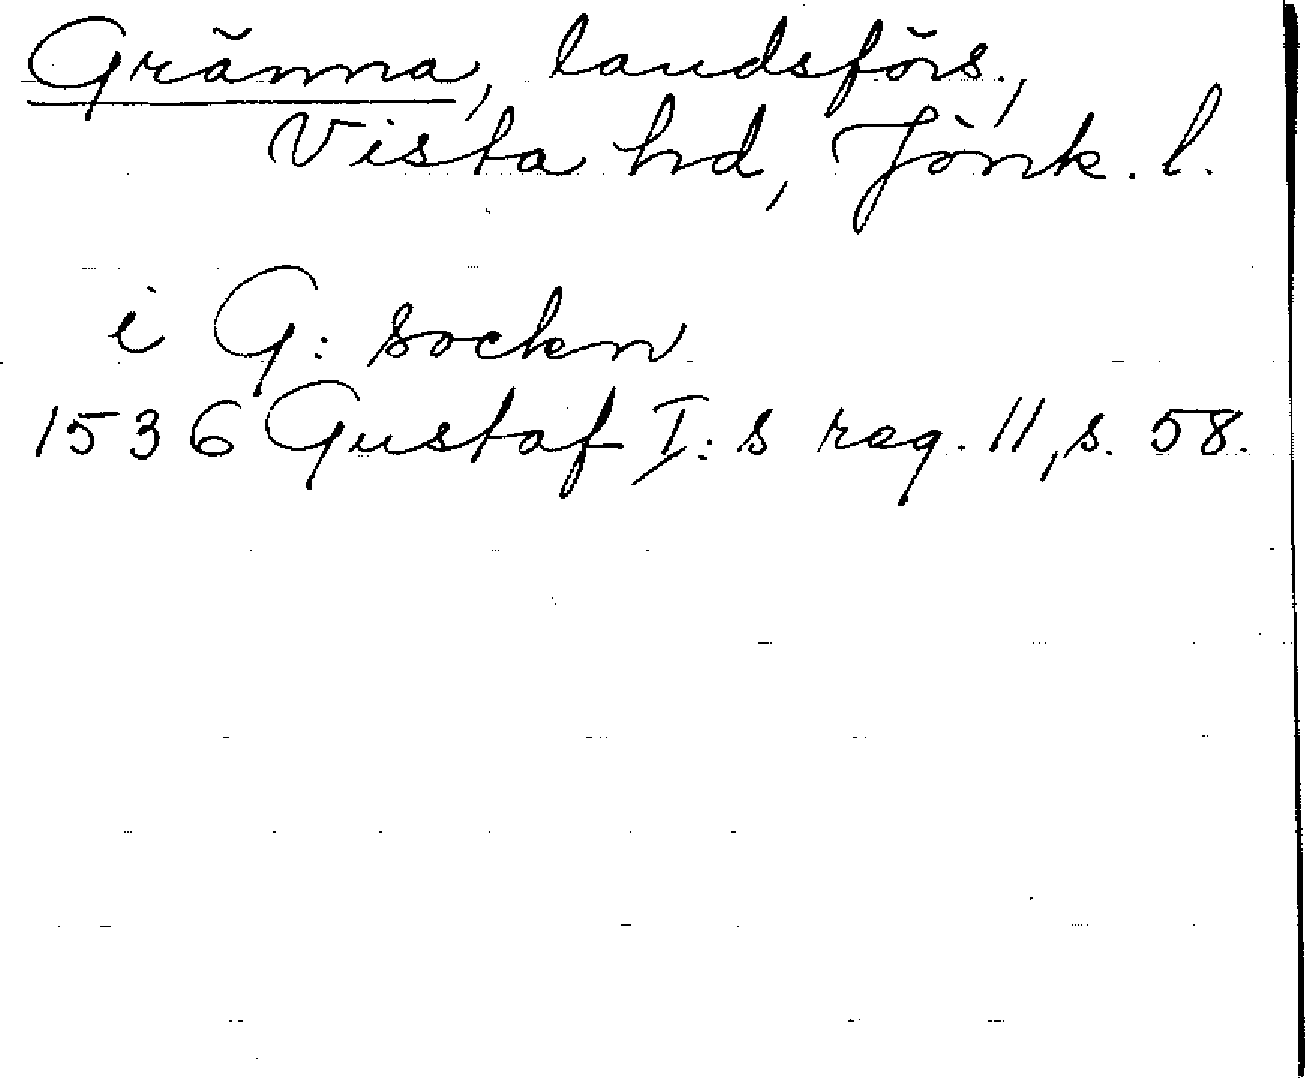 Gränna, landsförs.,
Vista hd, Jönk. l.
i G: sockn
1536 Gustaf I:s reg. 11, s. 58.